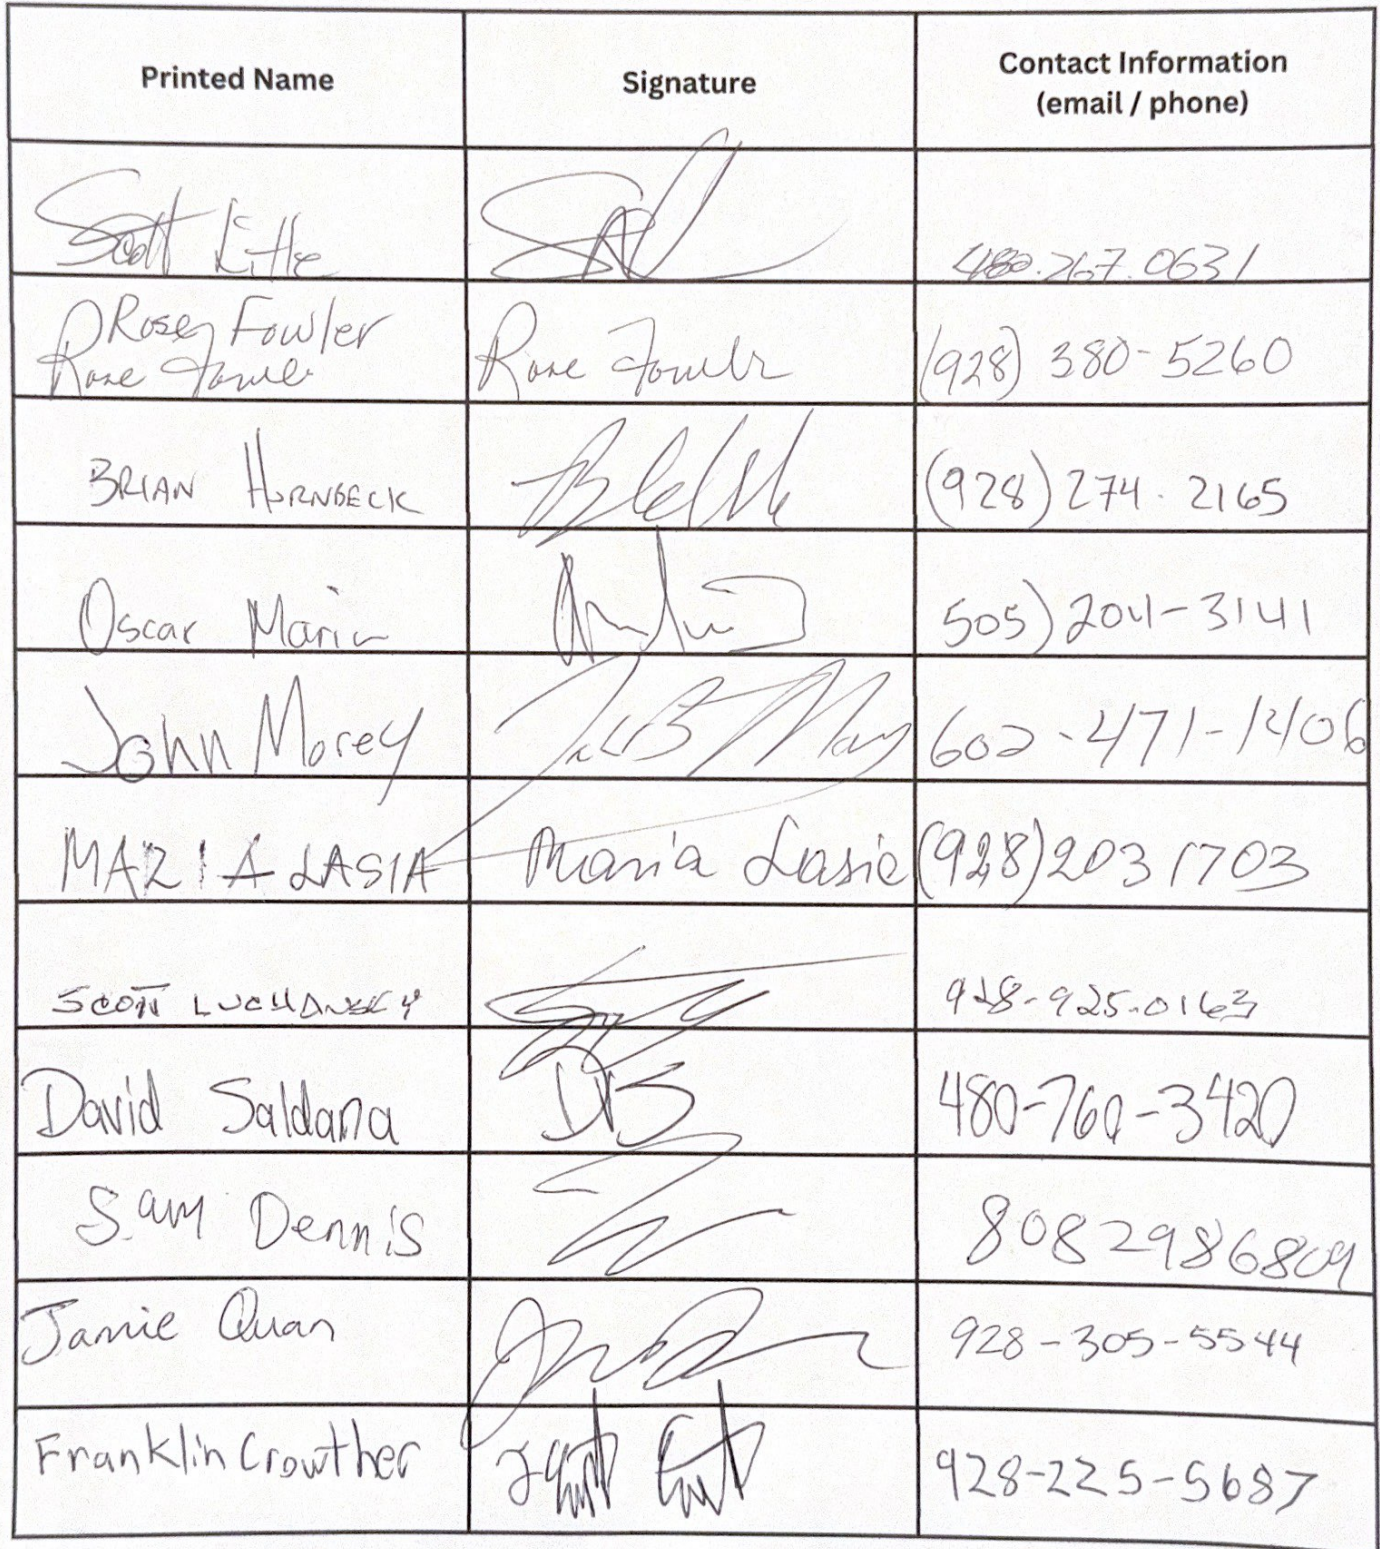 Printed Name
Signature
Contact Information
(email / phone)
Scott
480.267.0631
Rosey Fowler
Rose Fowler
Rose Fowler
(928) 380-5260
BRIAN HORNBECK
(928) 274. 2165
Oscar Marin
505) 204-3141
John Morey
602-471-1406
MARIA LASIA
Maria Lasia
(928) 203 1703
SCOTT LUCHANSKY
928-925-0163
David Saldana
DS
480-760-3420
Sam Dennis
8082986809
Jamie Quan
928-305-5544
Franklin Crowther
928-225-5687